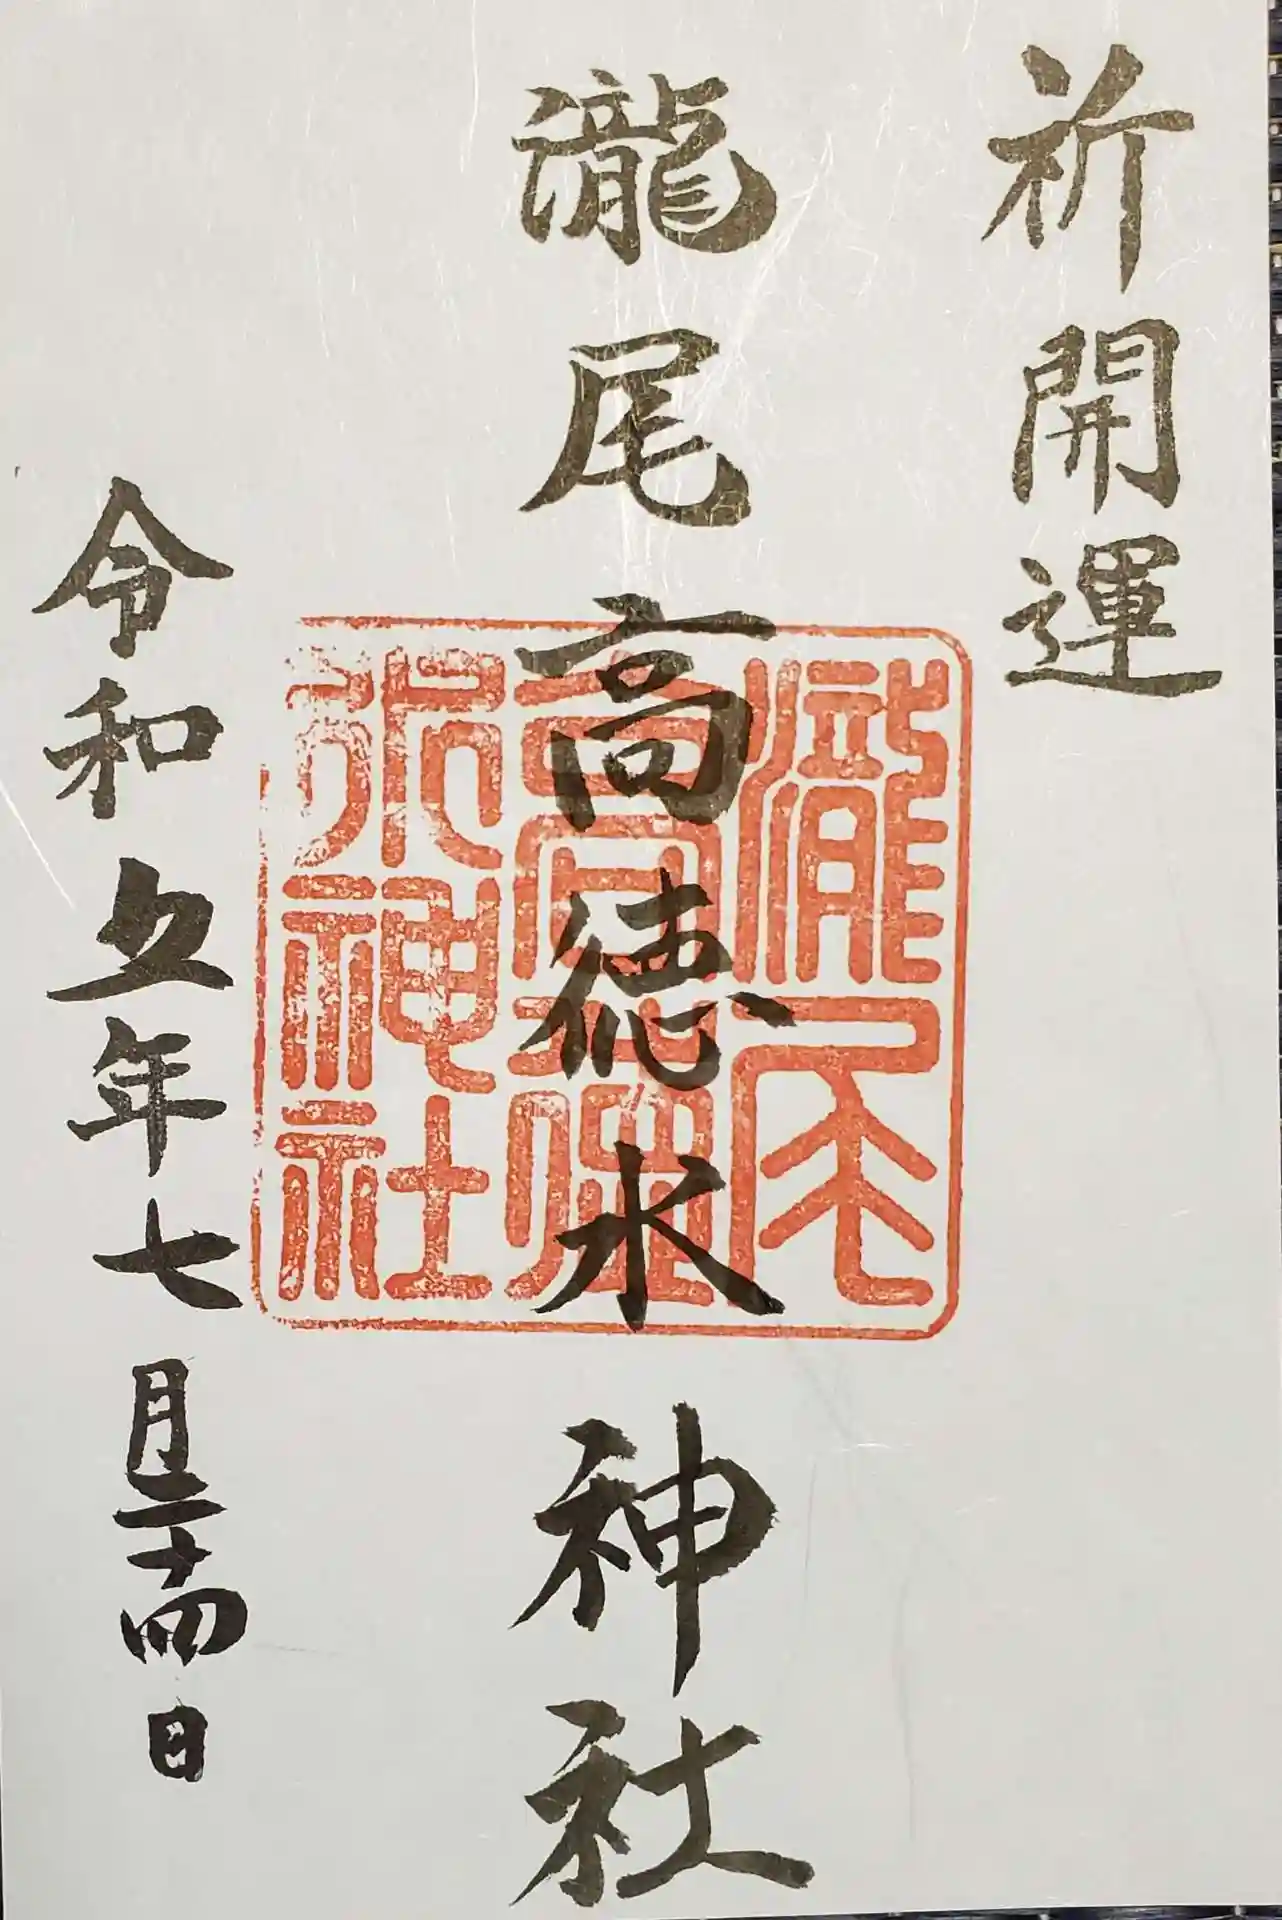 祈開運
瀧尾高徳水神社
瀧尾
高徳
水神社
令和五年七月二十四日